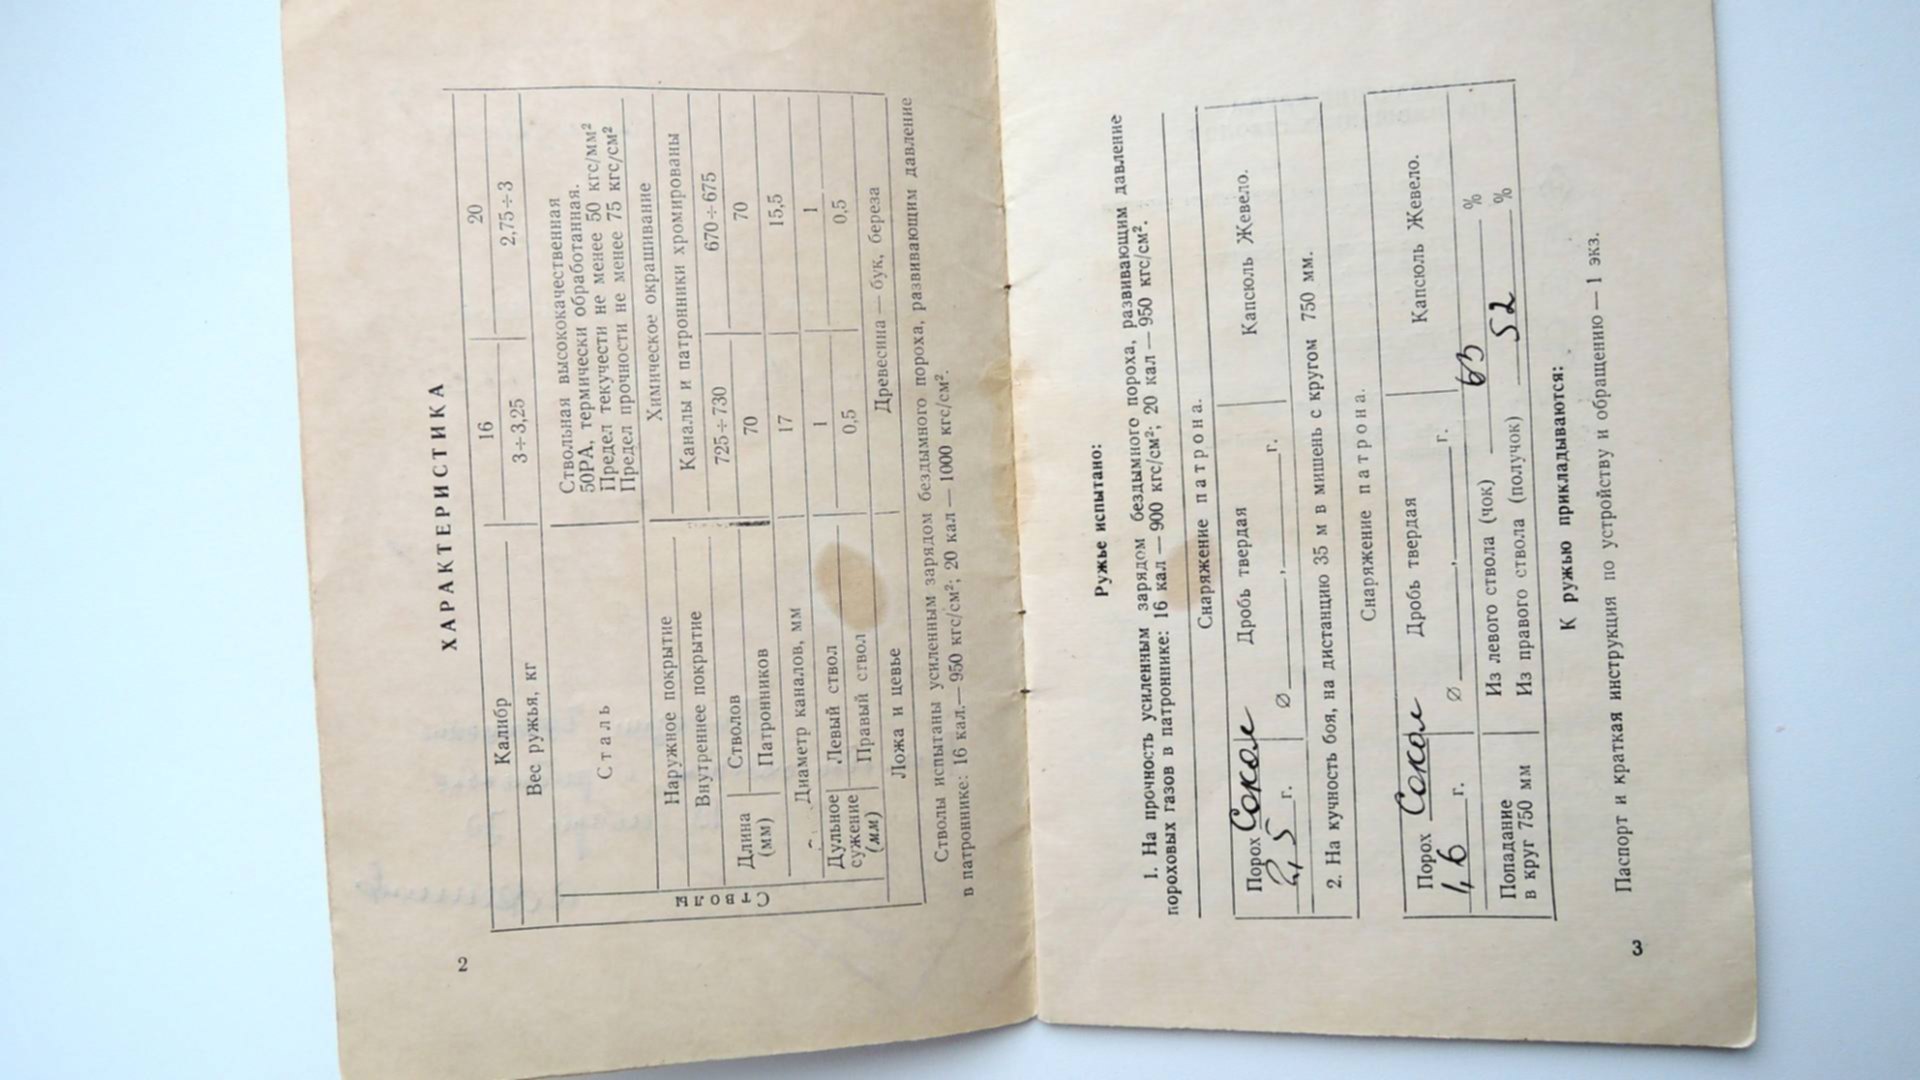 ХАРАКТЕРИСТИКА
Калибр 16 20
Вес ружья, кг 3÷3,25 2,75÷3
Сталь
Ствольная высококачественная
50РА, термически обработанная.
Предел текучести не менее 50 кгс/мм²
Предел прочности не менее 75 кгс/см²
Стволы
Наружное покрытие Химическое окрашивание
Внутреннее покрытие Каналы и патронники хромированы
Длина (мм) Стволов 725÷730 670÷675
Патронников 70 70
Диаметр каналов, мм 17 15,5
Дульное сужение (мм) Левый ствол 1 1
Правый ствол 0,5 0,5
Ложа и цевье Древесина — бук, береза
Стволы испытаны усиленным зарядом бездымного пороха, развивающим давление
в патроннике: 16 кал.—950 кгс/см²; 20 кал — 1000 кгс/см².
2
Ружье испытано:
1. На прочность усиленным зарядом бездымного пороха, развивающим давление
пороховых газов в патроннике: 16 кал — 900 кгс/см²; 20 кал — 950 кгс/см².
Снаряжение патрона.
Порох Сокол Дробь твердая Капсюль Жевело.
2,5 г. ∅ , г.
2. На кучность боя, на дистанцию 35 м в мишень с кругом 750 мм.
Снаряжение патрона.
Порох Сокол Дробь твердая Капсюль Жевело.
1,6 г. ∅ , г.
Попадание Из левого ствола (чок) 63 %
в круг 750 мм Из правого ствола (получок) 52 %
К ружью прикладываются:
Паспорт и краткая инструкция по устройству и обращению — 1 экз.
3